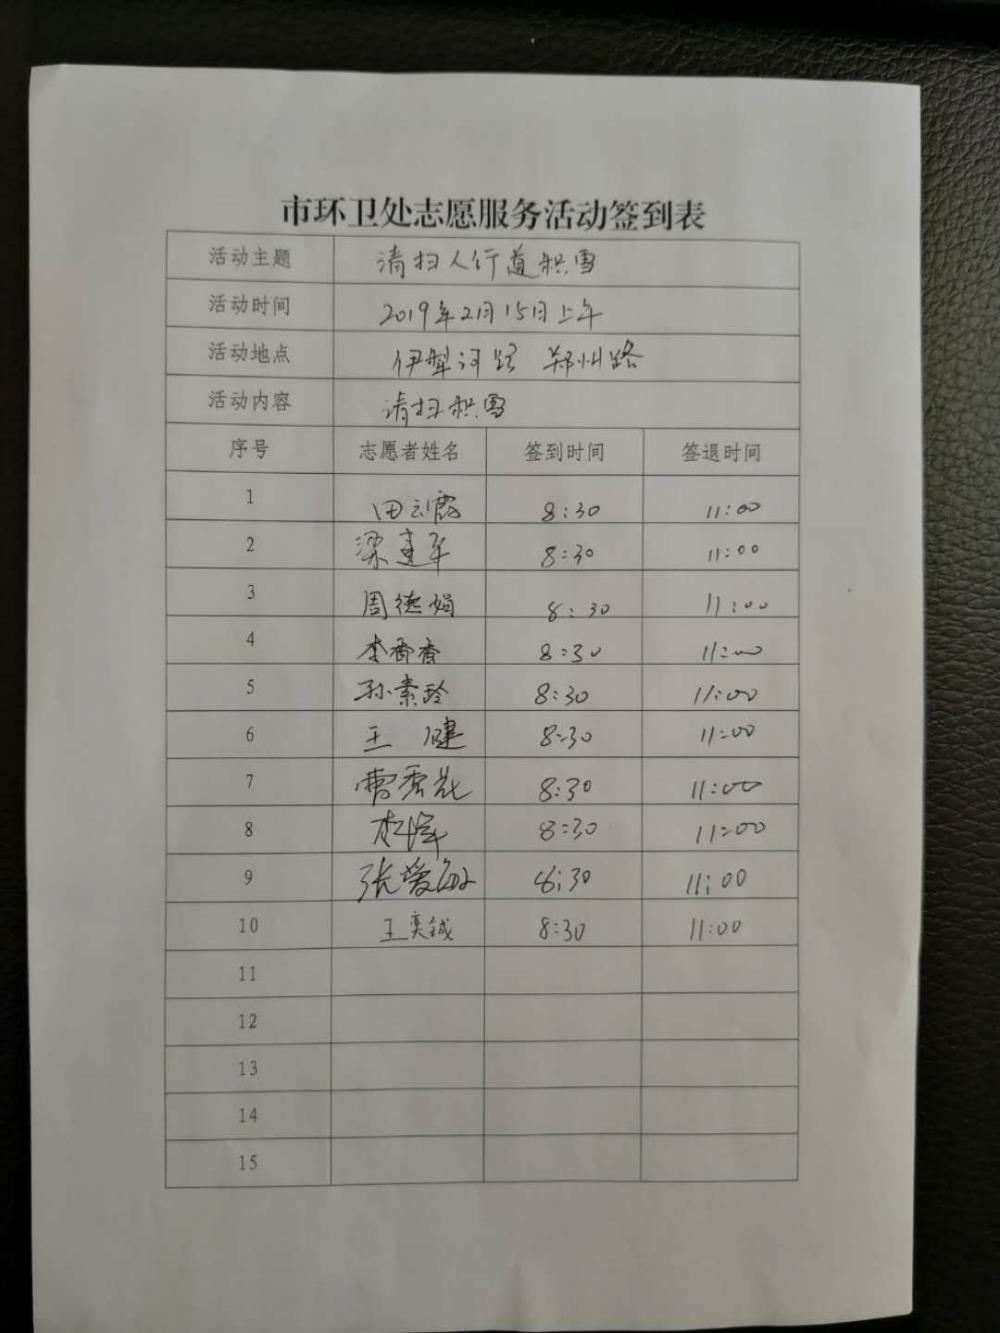 市环卫处志愿服务活动签到表
活动主题 清扫人行道积雪
活动时间 2019年2月15日上午
活动地点 伊犁河路 郑州路
活动内容 清扫积雪
序号 志愿者姓名 签到时间 签退时间
1 田云霞 8:30 11:00
2 梁建军 8:30 11:00
3 周德娟 8:30 11:00
4 李香香 8:30 11:00
5 孙素玲 8:30 11:00
6 王健 8:30 11:00
7 曹秀花 8:30 11:00
8 8:30 11:00
9 张爱 8:30 11:00
10 王奕铖 8:30 11:00
11
12
13
14
15